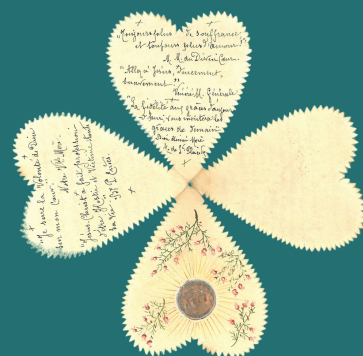 "Toujours plus de souffrance,
et toujours plus d'amour"
M. M. du Divin Cœur.
"Allez à Jésus, doucement,
suavement"
Vénéré M. Générale
"La fidélité aux grâces d'aujour
d'hui, vous méritera les
grâces de demain"
Je serai la Volonté de Dieu
sur mon Cœur"
Notre Vble Mère
"Jésus Christ a fait profession
d'être Hostie et Victime toute
sa vie"